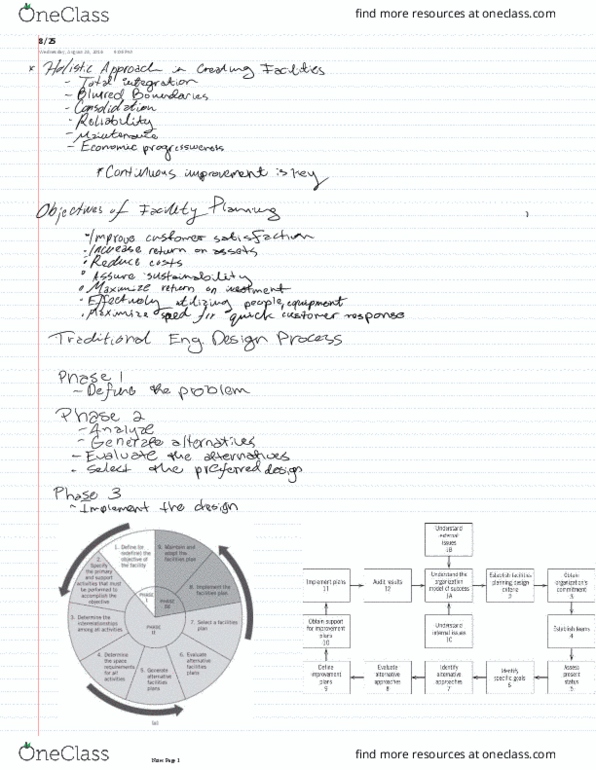 OneClass
find more resources at oneclass.com
8/25
Wednesday, August 24, 2016
* Holistic Approach in Creating Facilities
- Total integration
- Blurred Boundaries
- Consolidation
- Reliability
- Maintenance
- Economic progressiveness
* Continuous improvement is key
Objectives of Facility Planning
• Improve customer satisfaction
• Increase return on assets
• Reduce costs
• Assure sustainability
• Maximize return on investment
• Effectively utilizing people, equipment
• Maximize speed for quick customer response
Traditional Eng. Design Process
Phase 1
- Define the problem
Phase 2
- Analyze
- Generate alternatives
- Evaluate the alternatives
- Select the preferred design
Phase 3
- Implement the design
1. Define (or
redefine) the
objective of
the facility
2.
Specify
the primary
and support
activities that must
be performed to
accomplish the
objective
3. Determine the
interrelationships
among all activities
4. Determine
the space
requirements
for all
activities
5. Generate
alternative
facilities
plans
6. Evaluate
alternative
facilities
plans
7. Select a facilities
plan
8. Implement the
facilities plan
9. Maintain and
adapt the
facilities plan
PHASE
I
PHASE
II
PHASE
III
(a)
Understand
external
issues
1B
Implement plans
11
Audit results
12
Understand the
organization
model of success
1A
Establish facilities
planning design
criteria
2
Obtain
organization's
commitment
3
Obtain support
for improvement
plans
10
Understand
internal issues
1C
Establish teams
4
Define
improvement
plans
9
Evaluate
alternative
approaches
8
Identify
alternative
approaches
7
Identify
specific goals
6
Assess
present
status
5
OneClass
Page 1
find more resources at oneclass.com